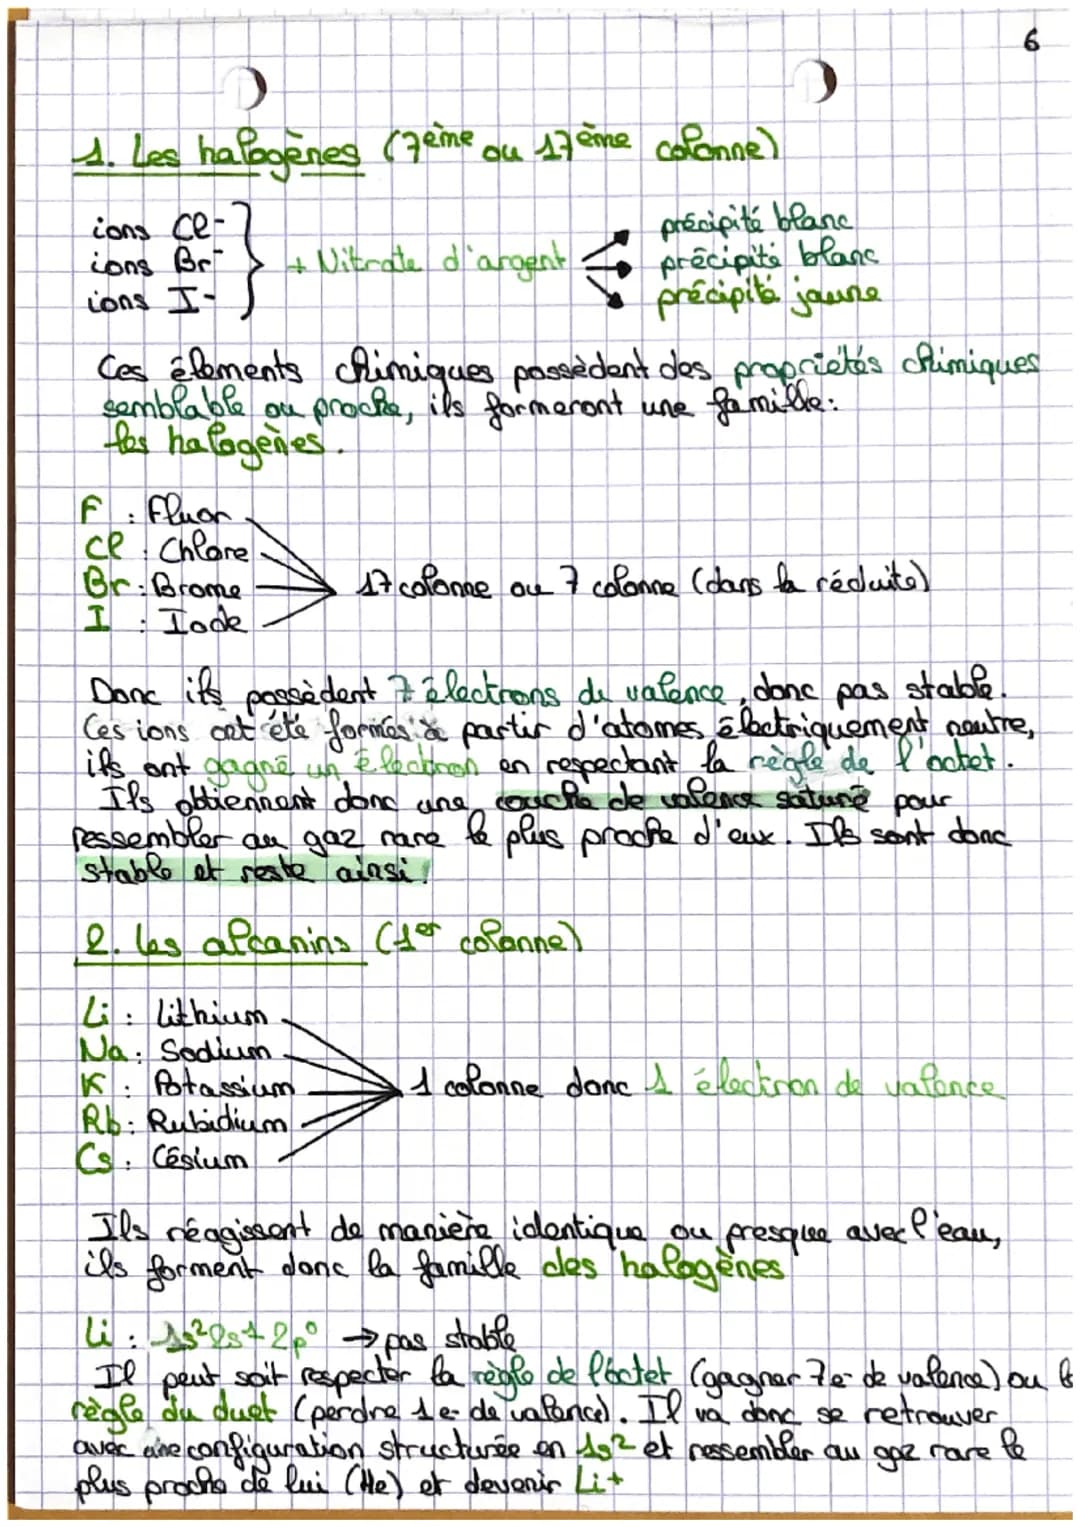 6
1. Les halogènes (7ème ou 17ème colonne)
ions Cl- précipité blanc
ions Br- + Nitrate d'argent précipité blanc
ions I- précipité jaune
Ces élements chimiques possèdent des propriétés chimiques
semblable ou proche, ils formeront une famille:
les halogènes.
F : Fluor
Cl : Chlore
Br : Brome 17 colonne ou 7 colonne (dans la réduite)
I : Iode
Donc ils possèdent 7 électrons de valence, donc pas stable.
Ces ions ont été formés à partir d'atomes électriquement neutre,
ils ont gagné un électron en respectant la règle de l'octet.
Ils obtiennent donc une couche de valence saturé pour
ressembler au gaz rare le plus proche d'eux. Ils sont donc
stable et reste ainsi.
2. les alcanins (1er colonne)
Li : Lithium
Na : Sodium
K : Potassium 1 colonne donc 1 électron de valence
Rb : Rubidium
Cs : Césium
Ils réagissent de manière identique ou presque avec l'eau,
ils forment donc la famille des halogènes
Li : 1s² 2s1 2p⁰ → pas stable
Il peut soit respecter la règle de l'octet (gagner 7 e- de valence) ou
règle du duet (perdre 1 e- de valence). Il va donc se retrouver
avec une configuration structurée en 1s² et ressembler au gaz rare le
plus proche de lui (He) et devenir Li+